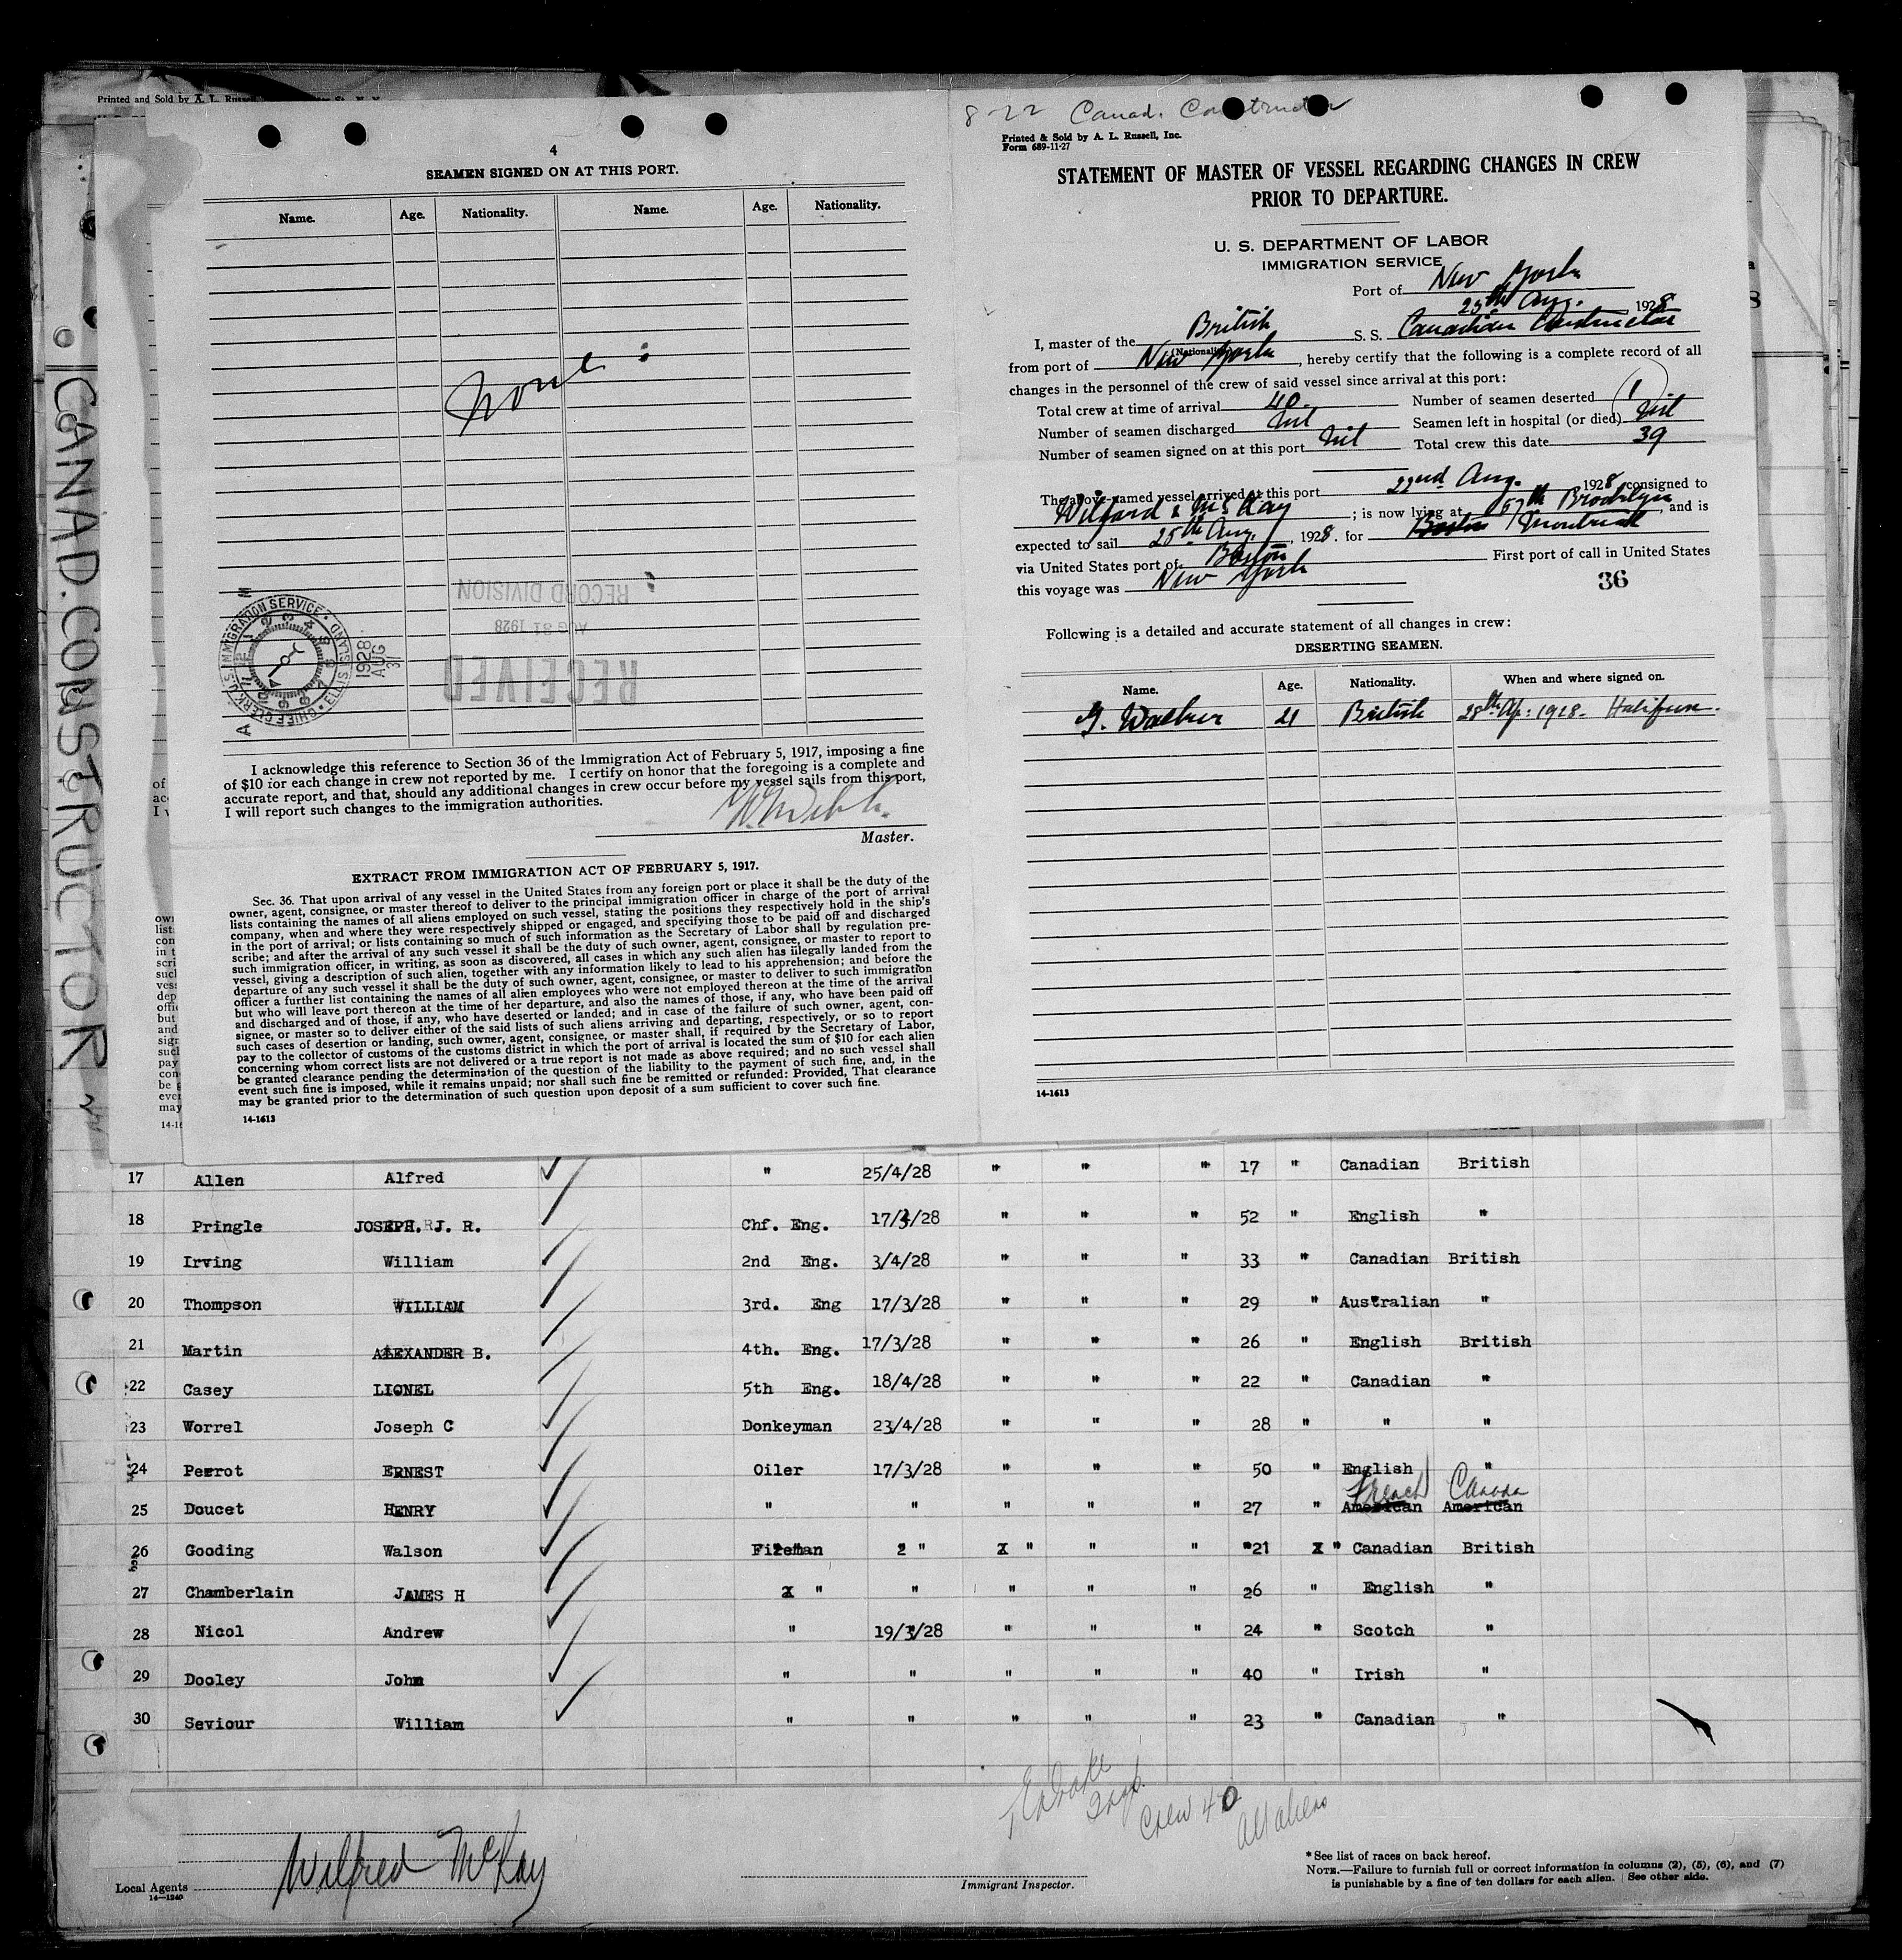 Printed and Sold by A. L. Russell
CANAD. CONSTRUCTOR
4
SEAMEN SIGNED ON AT THIS PORT.
Name. Age. Nationality. Name. Age. Nationality.
None
RECORD DIVISION
AUG 31 1928
RECEIVED
CHIEF CLERK U.S. IMMIGRATION SERVICE · ELLIS ISLAND
1928
AUG
31
I acknowledge this reference to Section 36 of the Immigration Act of February 5, 1917, imposing a fine
of $10 for each change in crew not reported by me. I certify on honor that the foregoing is a complete and
accurate report, and that, should any additional changes in crew occur before my vessel sails from this port,
I will report such changes to the immigration authorities.
Master.
EXTRACT FROM IMMIGRATION ACT OF FEBRUARY 5, 1917.
Sec. 36. That upon arrival of any vessel in the United States from any foreign port or place it shall be the duty of the
owner, agent, consignee, or master thereof to deliver to the principal immigration officer in charge of the port of arrival
lists containing the names of all aliens employed on such vessel, stating the positions they respectively hold in the ship's
company, when and where they were respectively shipped or engaged, and specifying those to be paid off and discharged
in the port of arrival; or lists containing so much of such information as the Secretary of Labor shall by regulation pre-
scribe; and after the arrival of any such vessel it shall be the duty of such owner, agent, consignee, or master to report to
such immigration officer, in writing, as soon as discovered, all cases in which any such alien has illegally landed from the
vessel, giving a description of such alien, together with any information likely to lead to his apprehension; and before the
departure of any such vessel it shall be the duty of such owner, agent, consignee, or master to deliver to such immigration
officer a further list containing the names of all alien employees who were not employed thereon at the time of the arrival
but who will leave port thereon at the time of her departure, and also the names of those, if any, who have been paid off
and discharged and of those, if any, who have deserted or landed; and in case of the failure of such owner, agent, con-
signee, or master so to deliver either of the said lists of such aliens arriving and departing, respectively, or so to report
such cases of desertion or landing, such owner, agent, consignee, or master shall, if required by the Secretary of Labor,
pay to the collector of customs of the customs district in which the port of arrival is located the sum of $10 for each alien
concerning whom correct lists are not delivered or a true report is not made as above required; and no such vessel shall
be granted clearance pending the determination of the question of the liability to the payment of such fine, and, in the
event such fine is imposed, while it remains unpaid; nor shall such fine be remitted or refunded: Provided, That clearance
may be granted prior to the determination of such question upon deposit of a sum sufficient to cover such fine.
14-1613
8-22 Canad. Constructor
Printed & Sold by A. L. Russell, Inc.
Form 689-11-27
STATEMENT OF MASTER OF VESSEL REGARDING CHANGES IN CREW
PRIOR TO DEPARTURE.
U. S. DEPARTMENT OF LABOR
IMMIGRATION SERVICE
Port of New York
25th Aug. 1928
I, master of the British S. S. Canadian Constructor
(Nationality)
from port of New York, hereby certify that the following is a complete record of all
changes in the personnel of the crew of said vessel since arrival at this port:
Total crew at time of arrival 40. Number of seamen deserted 1
Number of seamen discharged Nil Seamen left in hospital (or died) Nil
Number of seamen signed on at this port Nil Total crew this date 39
The above-named vessel arrived at this port 22nd Aug. 1928, consigned to
Wilfard & McKay; is now lying at 57th Brooklyn, and is
expected to sail 25th Aug., 1928. for Boston Montreal
via United States port of Boston First port of call in United States
this voyage was New York
36
Following is a detailed and accurate statement of all changes in crew:
DESERTING SEAMEN.
Name. Age. Nationality. When and where signed on.
G. Walker 21 British 28th Ap: 1928. Halifax.
14-1613
17 Allen Alfred " 25/4/28 " " " 17 " Canadian British
18 Pringle JOSEPH. J. R. Chf. Eng. 17/3/28 " " " 52 " English "
19 Irving William 2nd Eng. 3/4/28 " " " 33 " Canadian British
20 Thompson WILLIAM 3rd. Eng 17/3/28 " " " 29 " Australian "
21 Martin ALEXANDER B. 4th. Eng. 17/3/28 " " " 26 " English British
22 Casey LIONEL 5th Eng. 18/4/28 " " " 22 " Canadian "
23 Worrel Joseph C Donkeyman 23/4/28 " " " 28 " " "
24 Perrot ERNEST Oiler 17/3/28 " " " 50 " English "
French Canada
25 Doucet HENRY " " " " " 27 " American American
26 Gooding Walson Fireman " " " " 21 " Canadian British
27 Chamberlain JAMES H " " " " " 26 " English "
28 Nicol Andrew " 19/3/28 " " " 24 " Scotch "
29 Dooley John " " " " " 40 " Irish "
30 Seviour William " " " " " 23 " Canadian "
Crew 40
All aliens
Wilfred McKay
Local Agents
14-1240
Immigrant Inspector.
* See list of races on back hereof.
NOTE.—Failure to furnish full or correct information in columns (2), (5), (6), and (7)
is punishable by a fine of ten dollars for each alien. See other side.